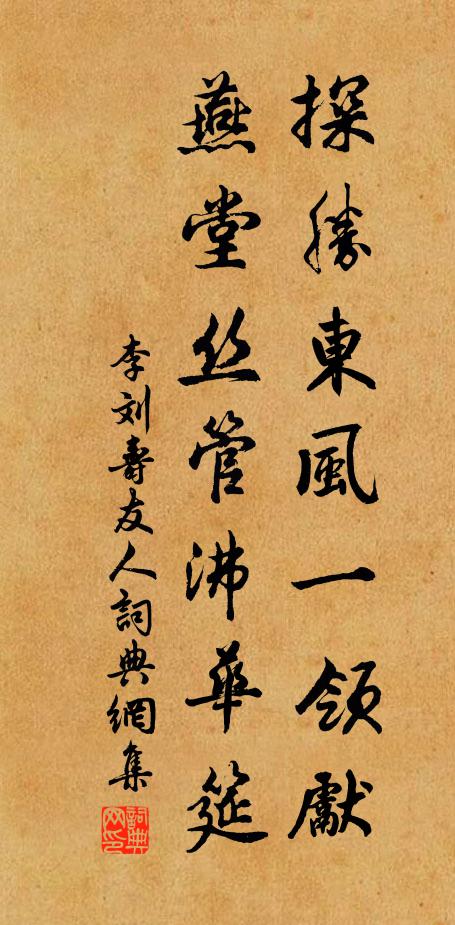 探勝東風一領獻
燕堂丝管沸華筵
李刘壽友人詞典網集
詞典網印